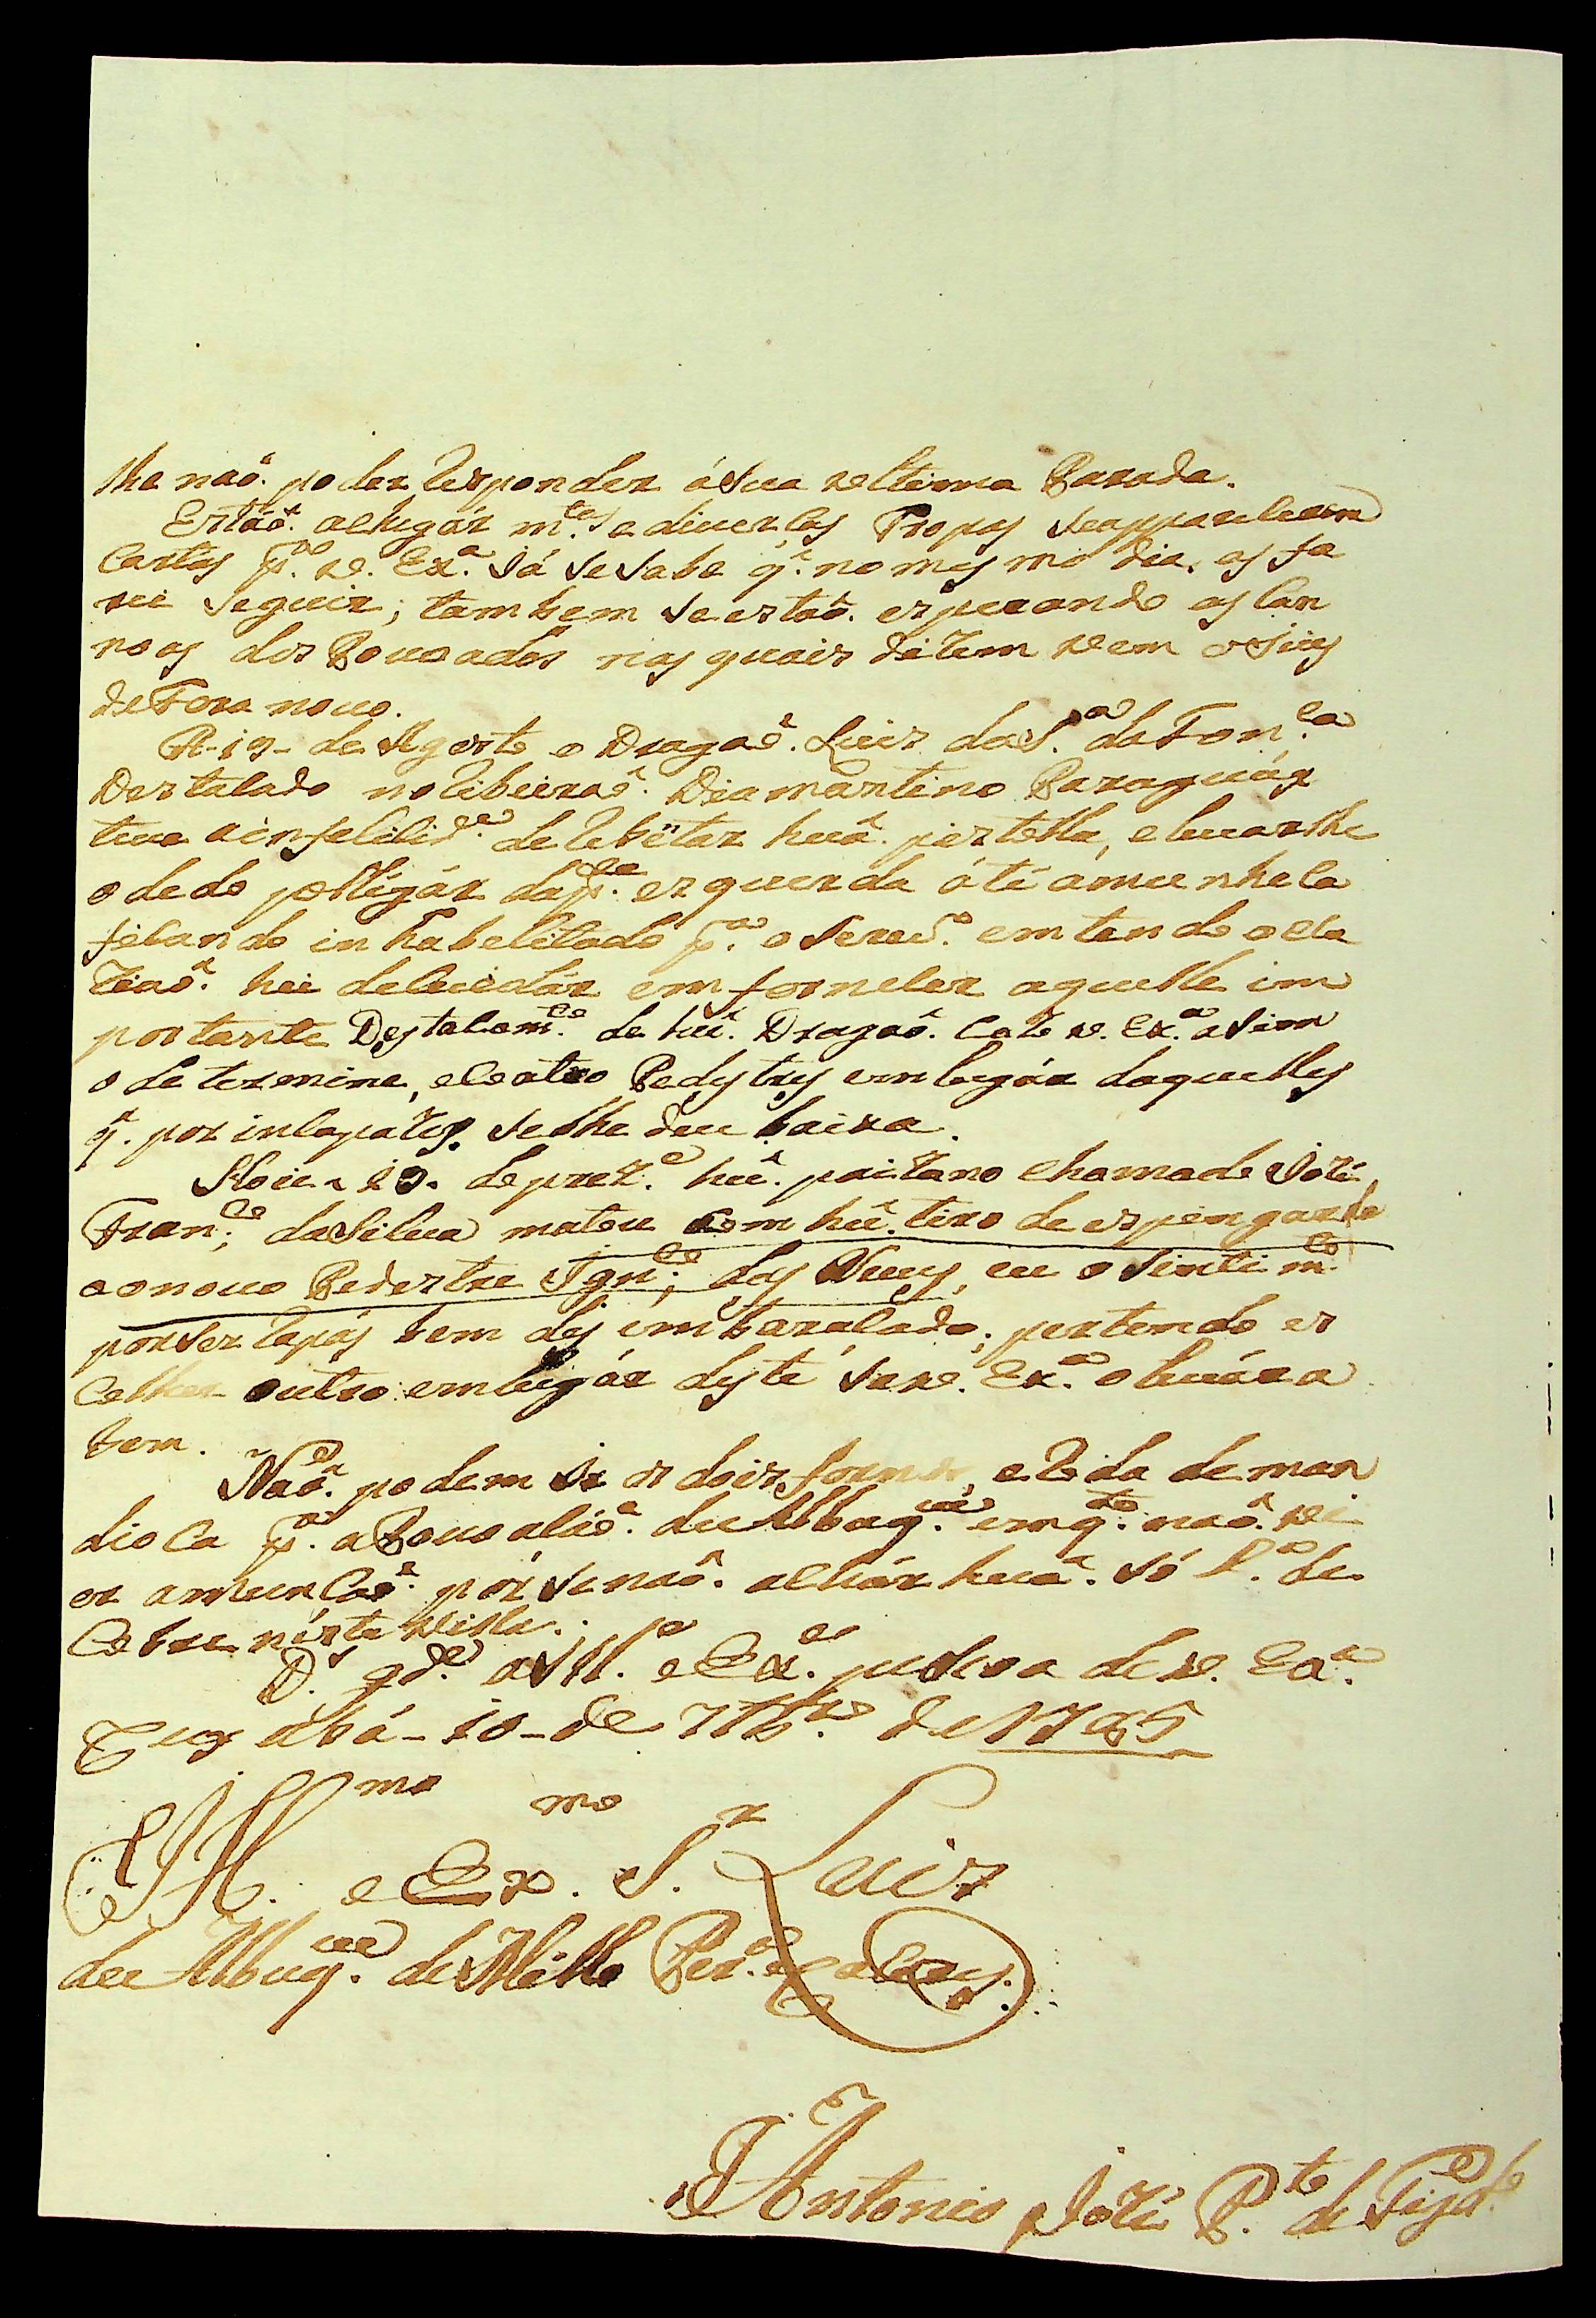 lhe naõ. poder responder á sua veltima Parada.
Estaõ. achegár m.tas e divercas Tropas se apparecerem
Cartas p.a V. Ex.a Já se sabe q̃. no mes mo dia, as fa
rei seguir; tambem se estaõ. esperando as Can
noas dos Povoados nas quais dizem vem o Juis
de Fora novo.
A-19- de Agosto o Dragaõ. Luis da S.a da Fon.ca
Destacado no Ribeiraõ. Diamantino Paraguáy
teve ainfelicid.e de rebẽtar huã. pistolla, e levarlhe
o dedo pollegár da p.te esquerda áté amunheca
ficando inhabelitado p.a o Serviç.o emtendo o cla
ziaõ. hei de cuidár em forneler aquelle im
portante Destacam.to de hũ. Dragaõ. Cazo V. Ex.a asim
o determine, e coatro Pedestres em lugár daquelles
q̃. por incapazes. se lhe deu baixa.
Hoie - 10. do prez.e hũ. paizano chamado Jozé
Fran.co da Silva matou com hũ tiro de espingarda
ao novo Pedestre Ign.co das Neves, eu o Sinti m.to
por ser rapás bem des imbaracado; pertendo es
colher outro em lugár deste se V. Ex.a o levár a
bem.
Naõ. podem ir os dois fornos, e roda de man
dioca p.a a Povoaçáõ. de Albuq.ue em q.to naõ. vi
er amunçaõ. por se naõ. achár huã. só L.a de
Cobre nésta Villa.
D.s g.de a Ill.ma e Ex.ma pesoa de V. Ex.a
Cuyabá - 10 - de 7br.o de 1785
Ill.mo e Ex.mo S.r Luis
de Albuq.ue de Mello Per.a e Caceres.
Antonio Jozé P.to de Figd.o